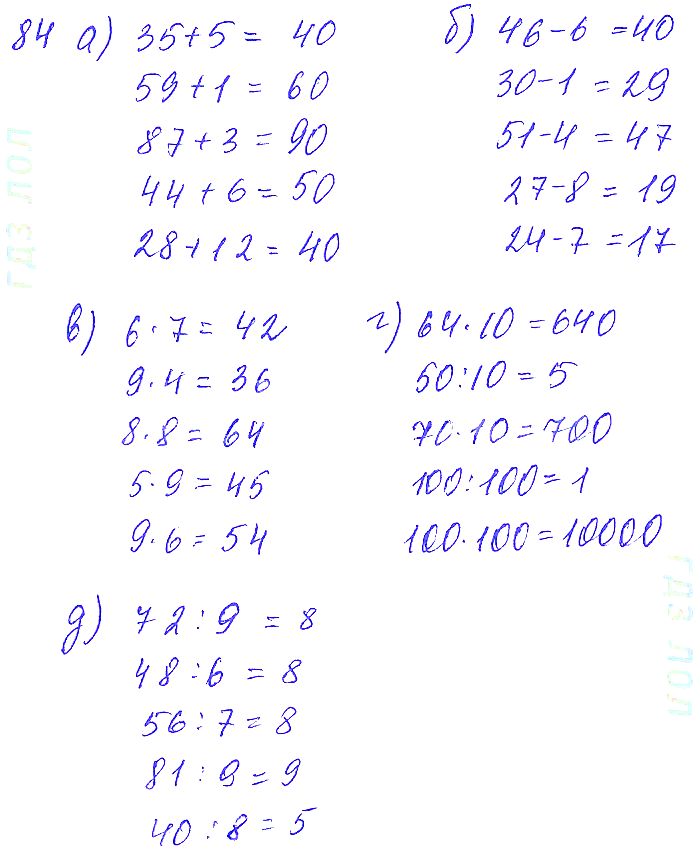 84 а) 35+5 = 40
59+1 = 60
87+3 = 90
44+6 = 50
28+12 = 40
б) 46-6 = 40
30-1 = 29
51-4 = 47
27-8 = 19
24-7 = 17
в) 6·7 = 42
9·4 = 36
8·8 = 64
5·9 = 45
9·6 = 54
г) 64·10 = 640
50:10 = 5
70·10 = 700
100:100 = 1
100·100 = 10000
д) 72:9 = 8
48:6 = 8
56:7 = 8
81:9 = 9
40:8 = 5
гдз лол
гдз лол